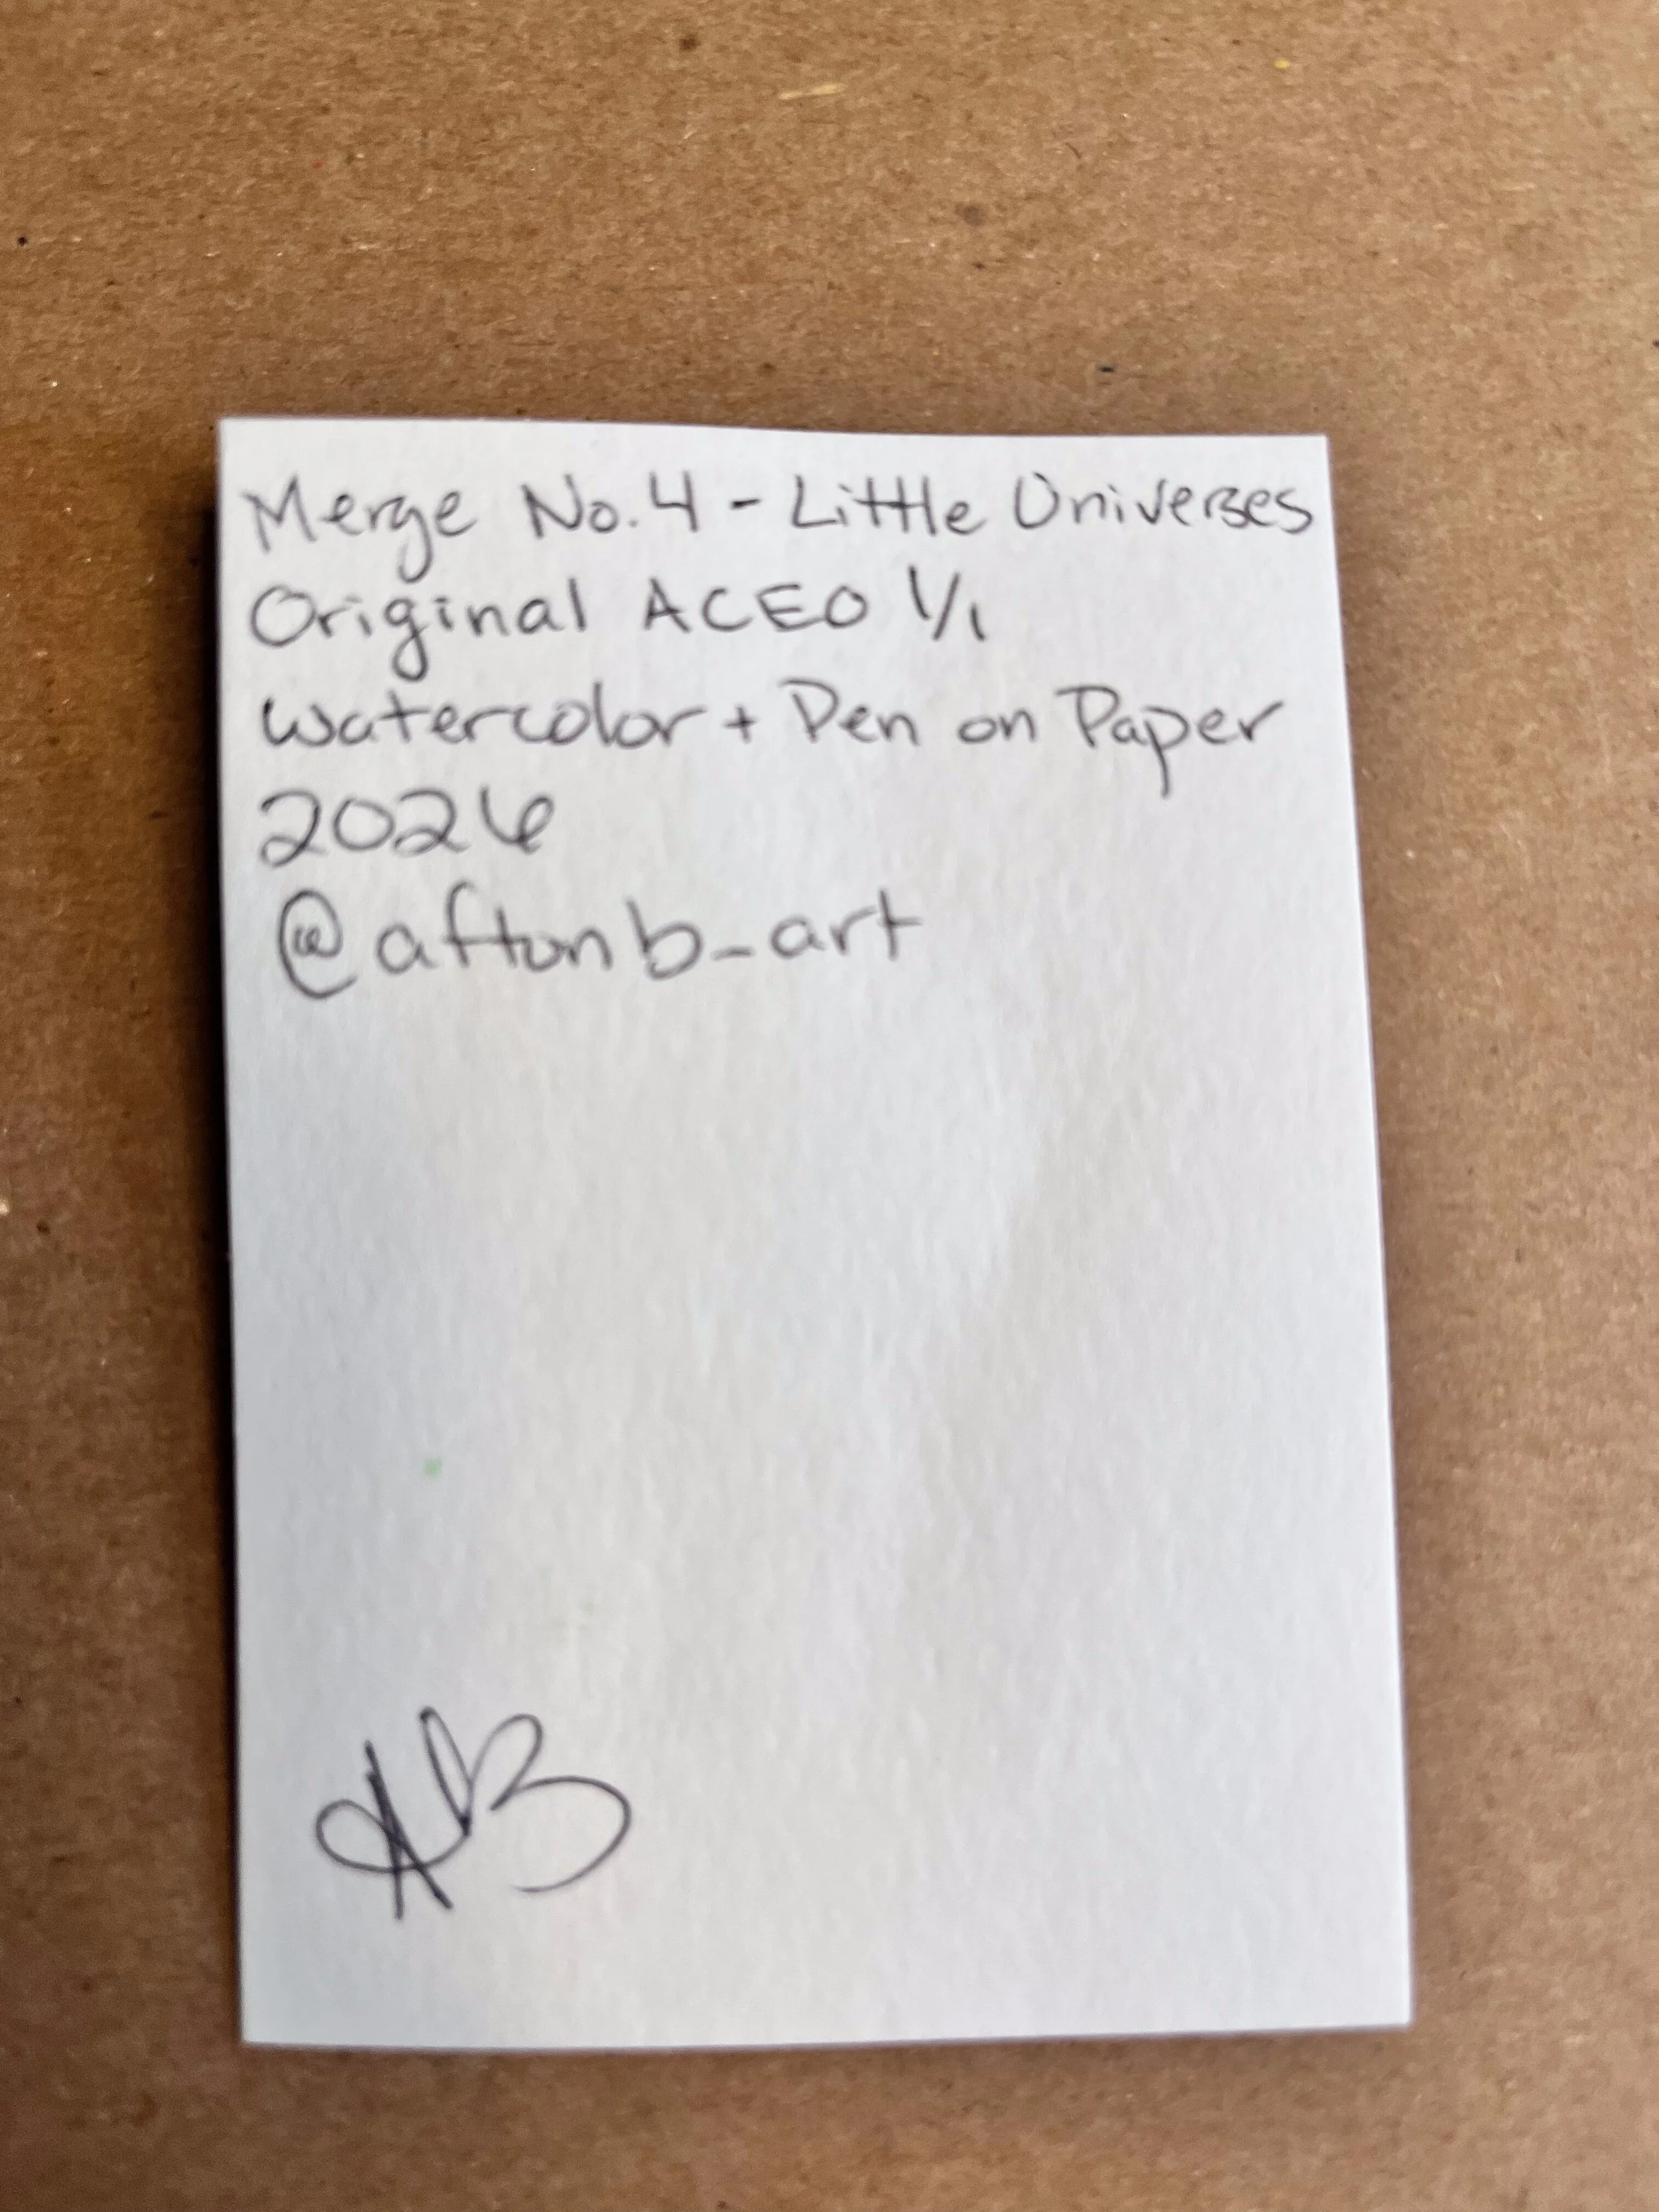 Merge No. 4 - Little Universes
Original ACEO 1/1
Watercolor + Pen on Paper
2026
@aftonb_art
AB